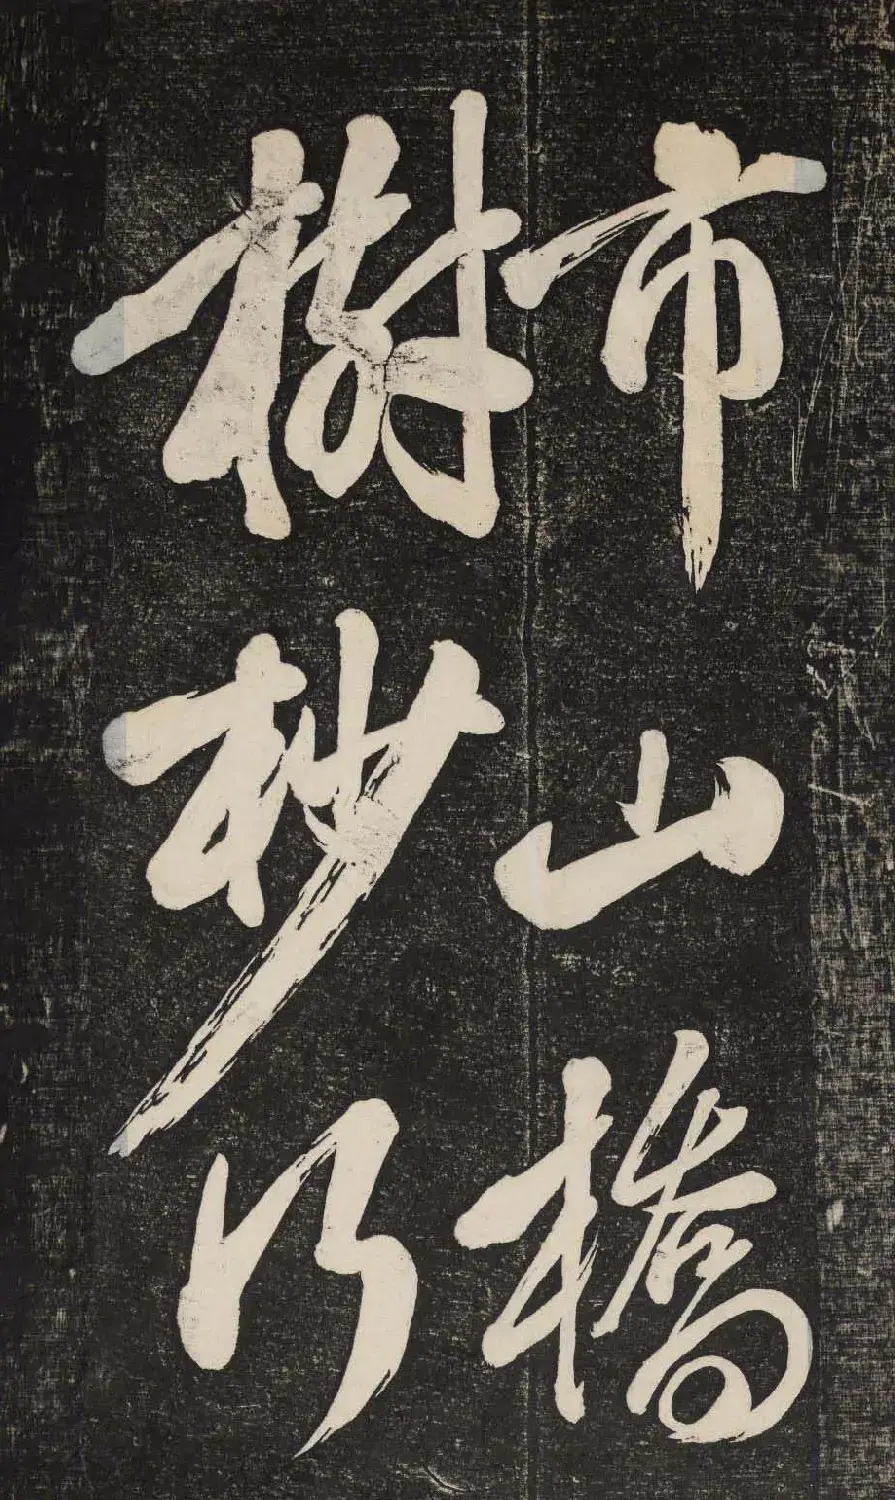 市山橋
樹杪行